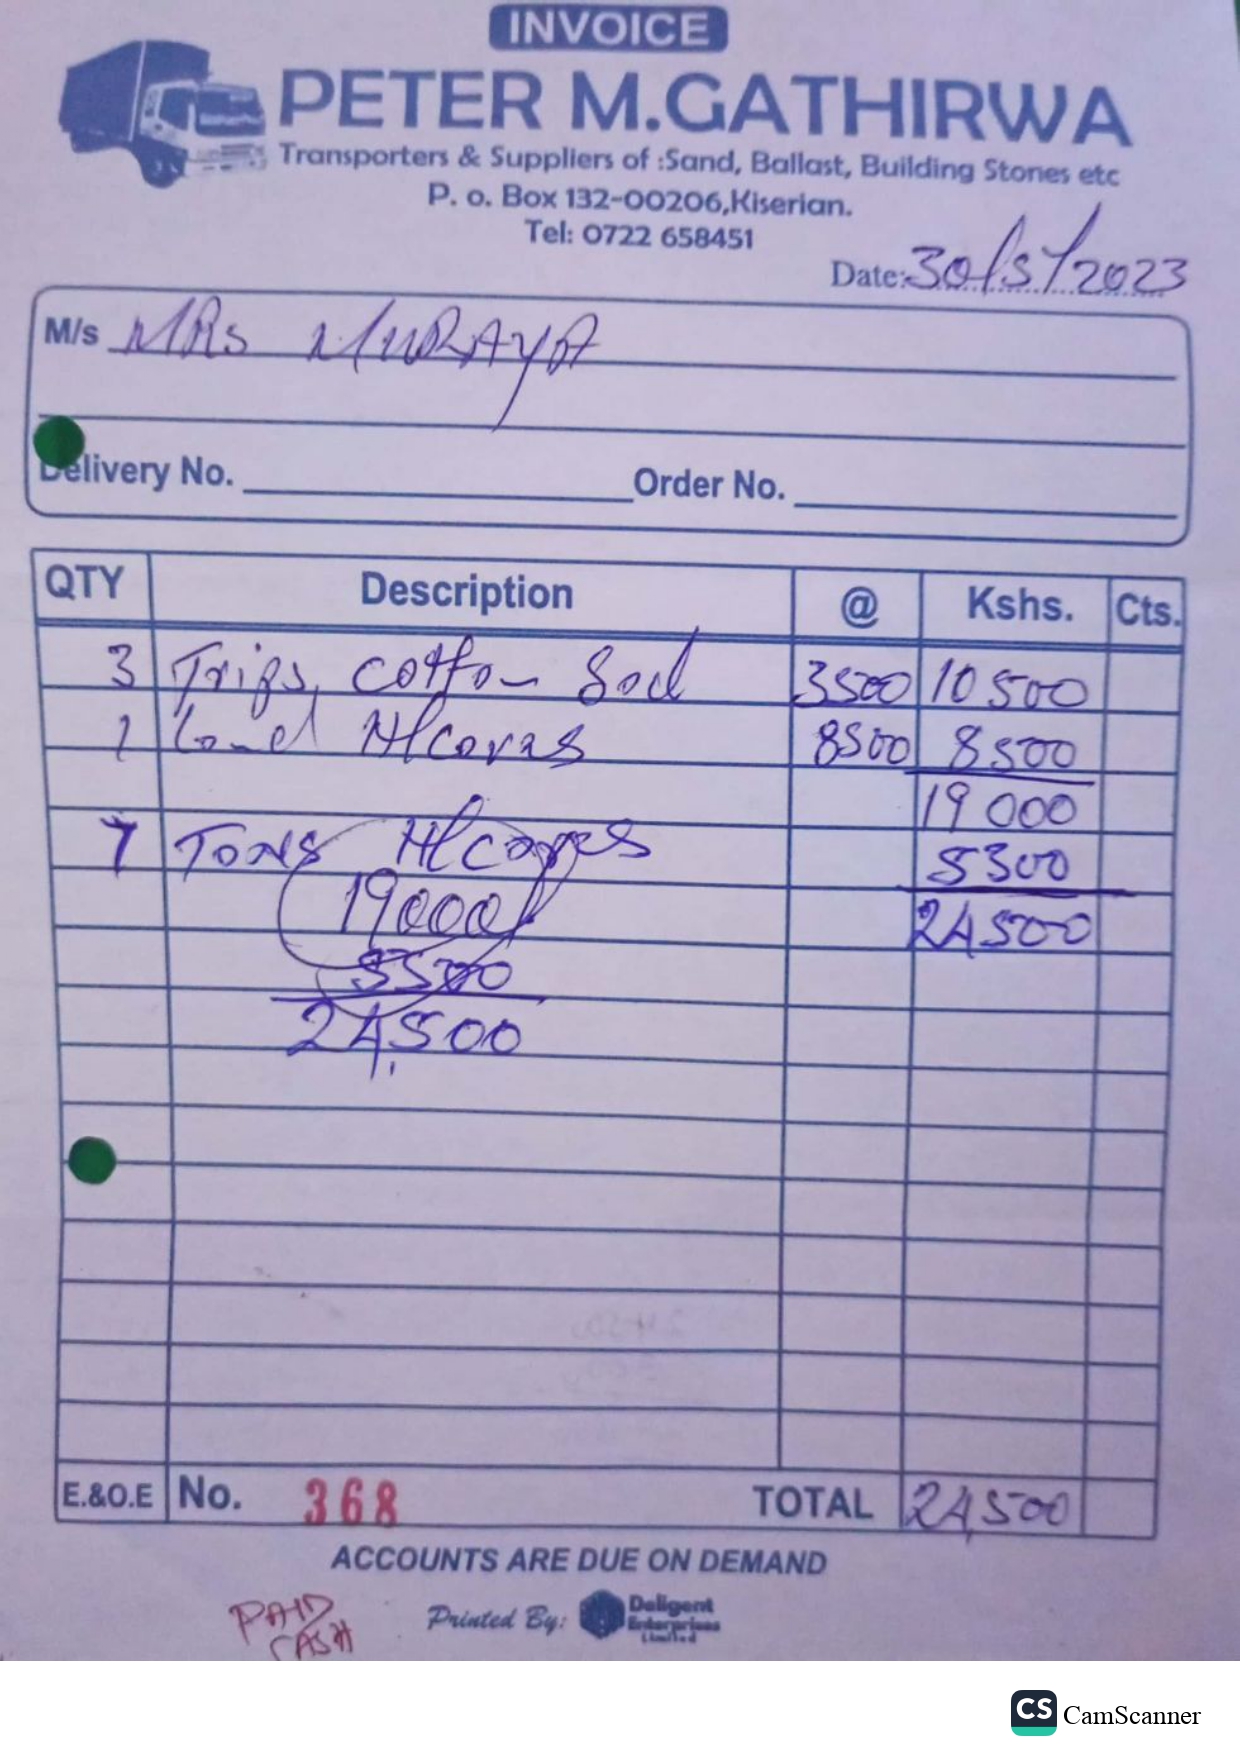 INVOICE
PETER M.GATHIRWA
Transporters & Suppliers of :Sand, Ballast, Building Stones etc
P. o. Box 132-00206,Kiserian.
Tel: 0722 658451
Date: 30/5/2023
M/s MRs MURAYA
Delivery No. Order No.
QTY Description @ Kshs. Cts.
3 Trips cotton Soil 3500 10500
1 8500 8500
19000
7 Tons 5300
19000 24500
5500
24,500
E.&O.E No. 368 TOTAL 24,500
ACCOUNTS ARE DUE ON DEMAND
PAID
CASH
Printed By: Deligent
Enterprises
Limited
CS CamScanner